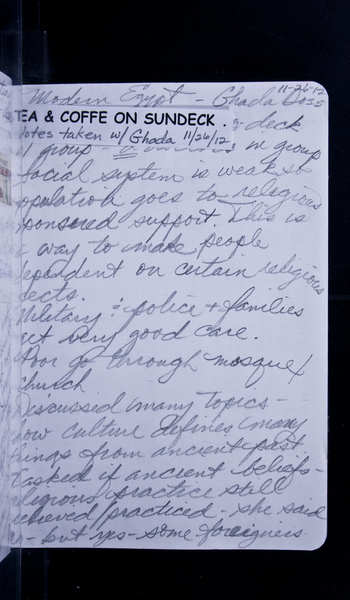 11-26-12
Modern Egypt - Ghada Doss
TEA & COFFE ON SUNDECK . deck
Notes taken w/ Ghada 11/26/12
group - in group
Social system is weak so
population goes to religious
sponsered support. This is
a way to make people
dependent on certain religious
sects.
Military & police + families
get very good care.
Poor go through mosque/
church
Discussed many topics -
how culture defines many
things from ancient past
I asked if ancient beliefs -
religious practice still
believed practiced - she said
- but yes - some foreigners